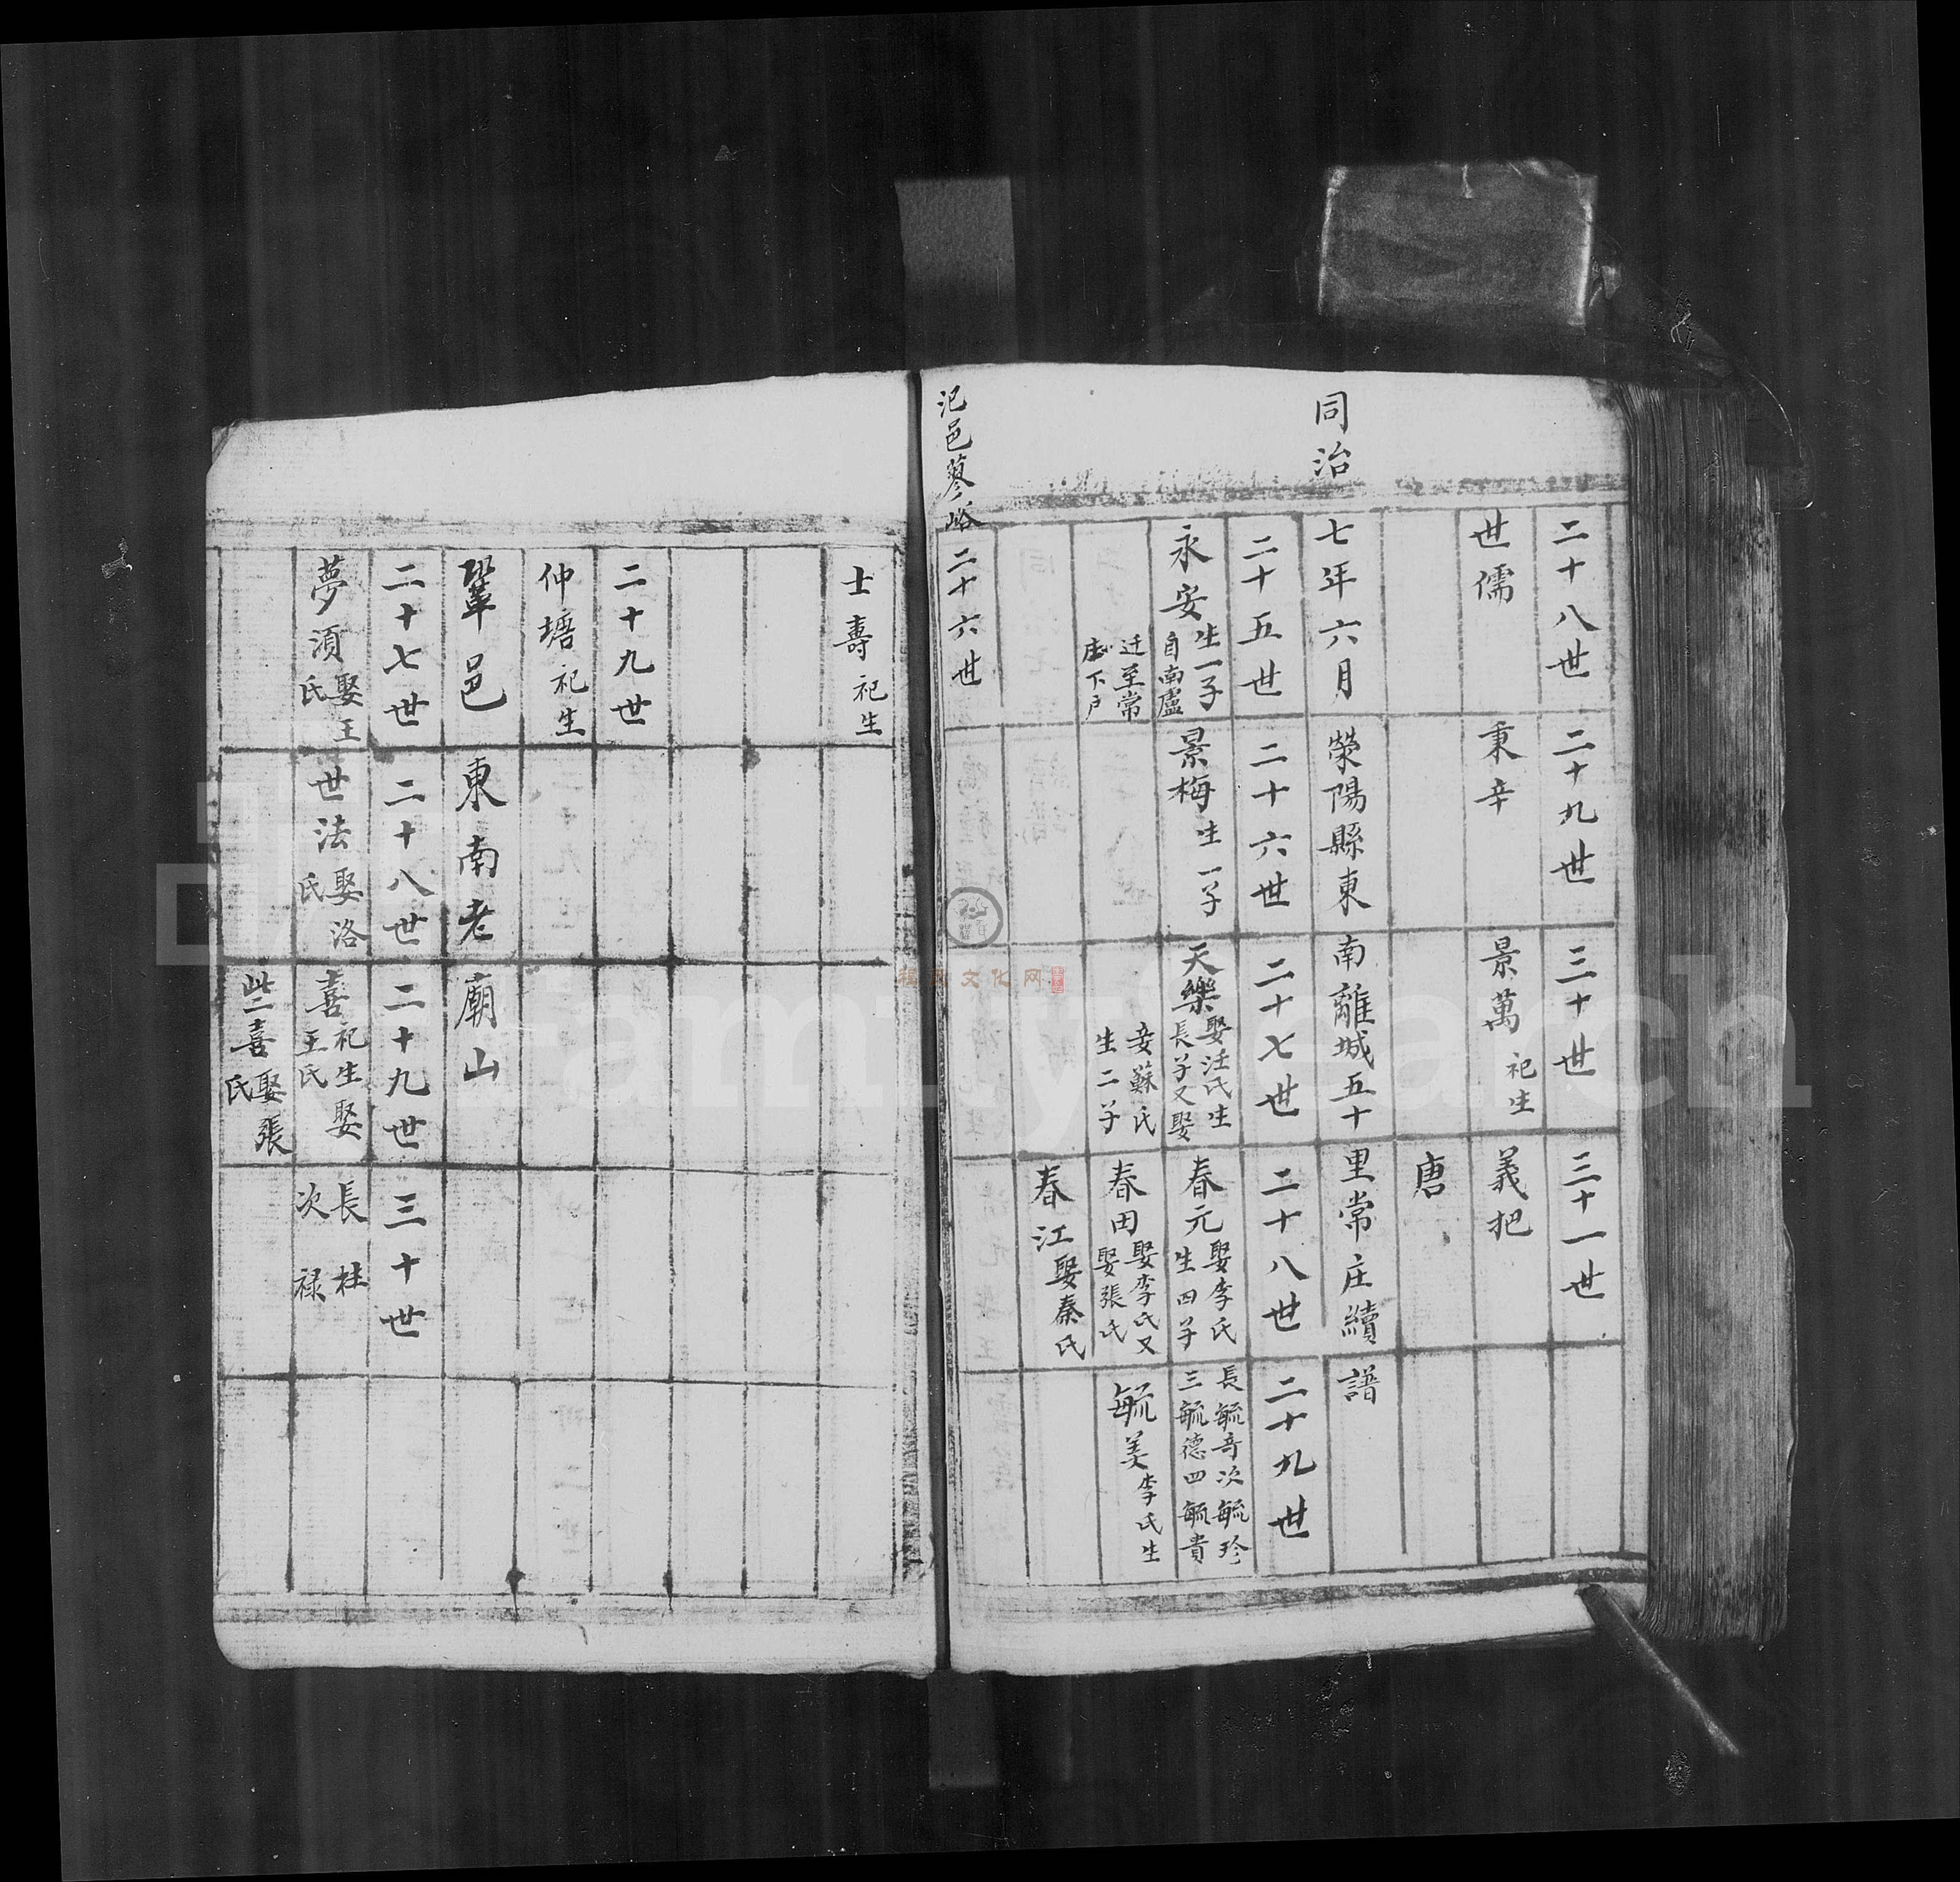 二十八世 二十九世 三十世 三十一世
世儒 秉辛 景萬 祀生 義把
唐
同治七年六月 滎陽縣東南離城五十里常庄續譜
二十五世 二十六世 二十七世 二十八世 二十九世
永安 生一子自南盧 景梅 生一子 天樂 娶汪氏生長子又娶 春元 娶李氏生四子 長毓奇次毓珍三毓德四毓貴
迁至常庄下户 妾蘇氏生二子 春田 娶李氏又娶張氏 毓姜 李氏生
春江 娶秦氏
汜邑蓼峪 二十六世
士壽 祀生
二十九世
仲塘 祀生
鞏邑東南老廟山
二十七世 二十八世 二十九世 三十世
夢湏 娶王氏 世法 娶洛氏 喜 祀生娶王氏 長柱次禄
喜 娶張氏